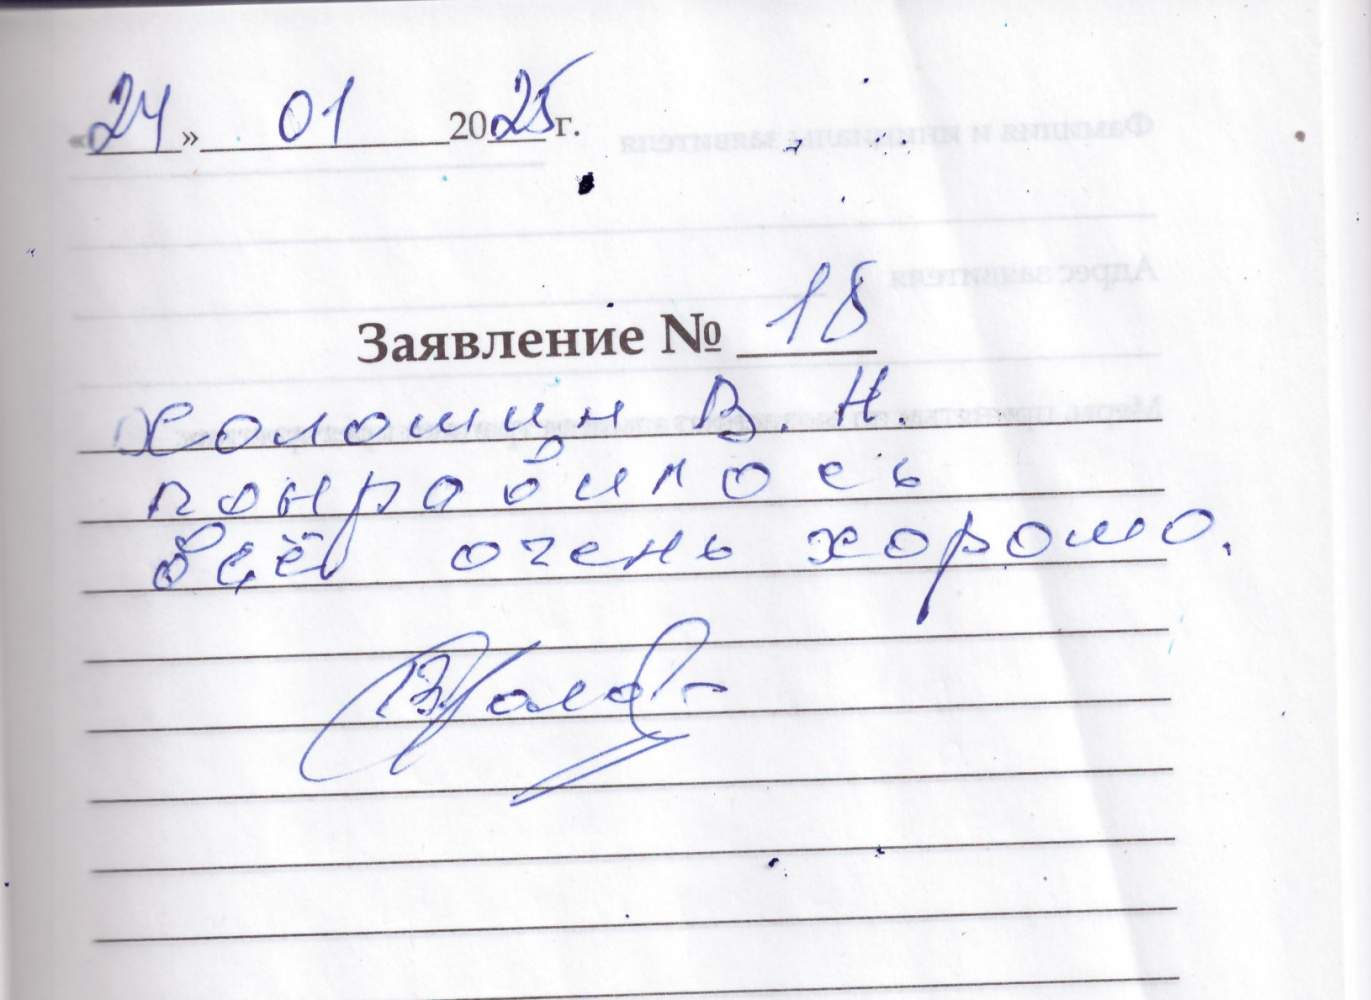 «24» 01 2025 г.
Заявление № 18
В. Н.
понравилось
всё очень хорошо.